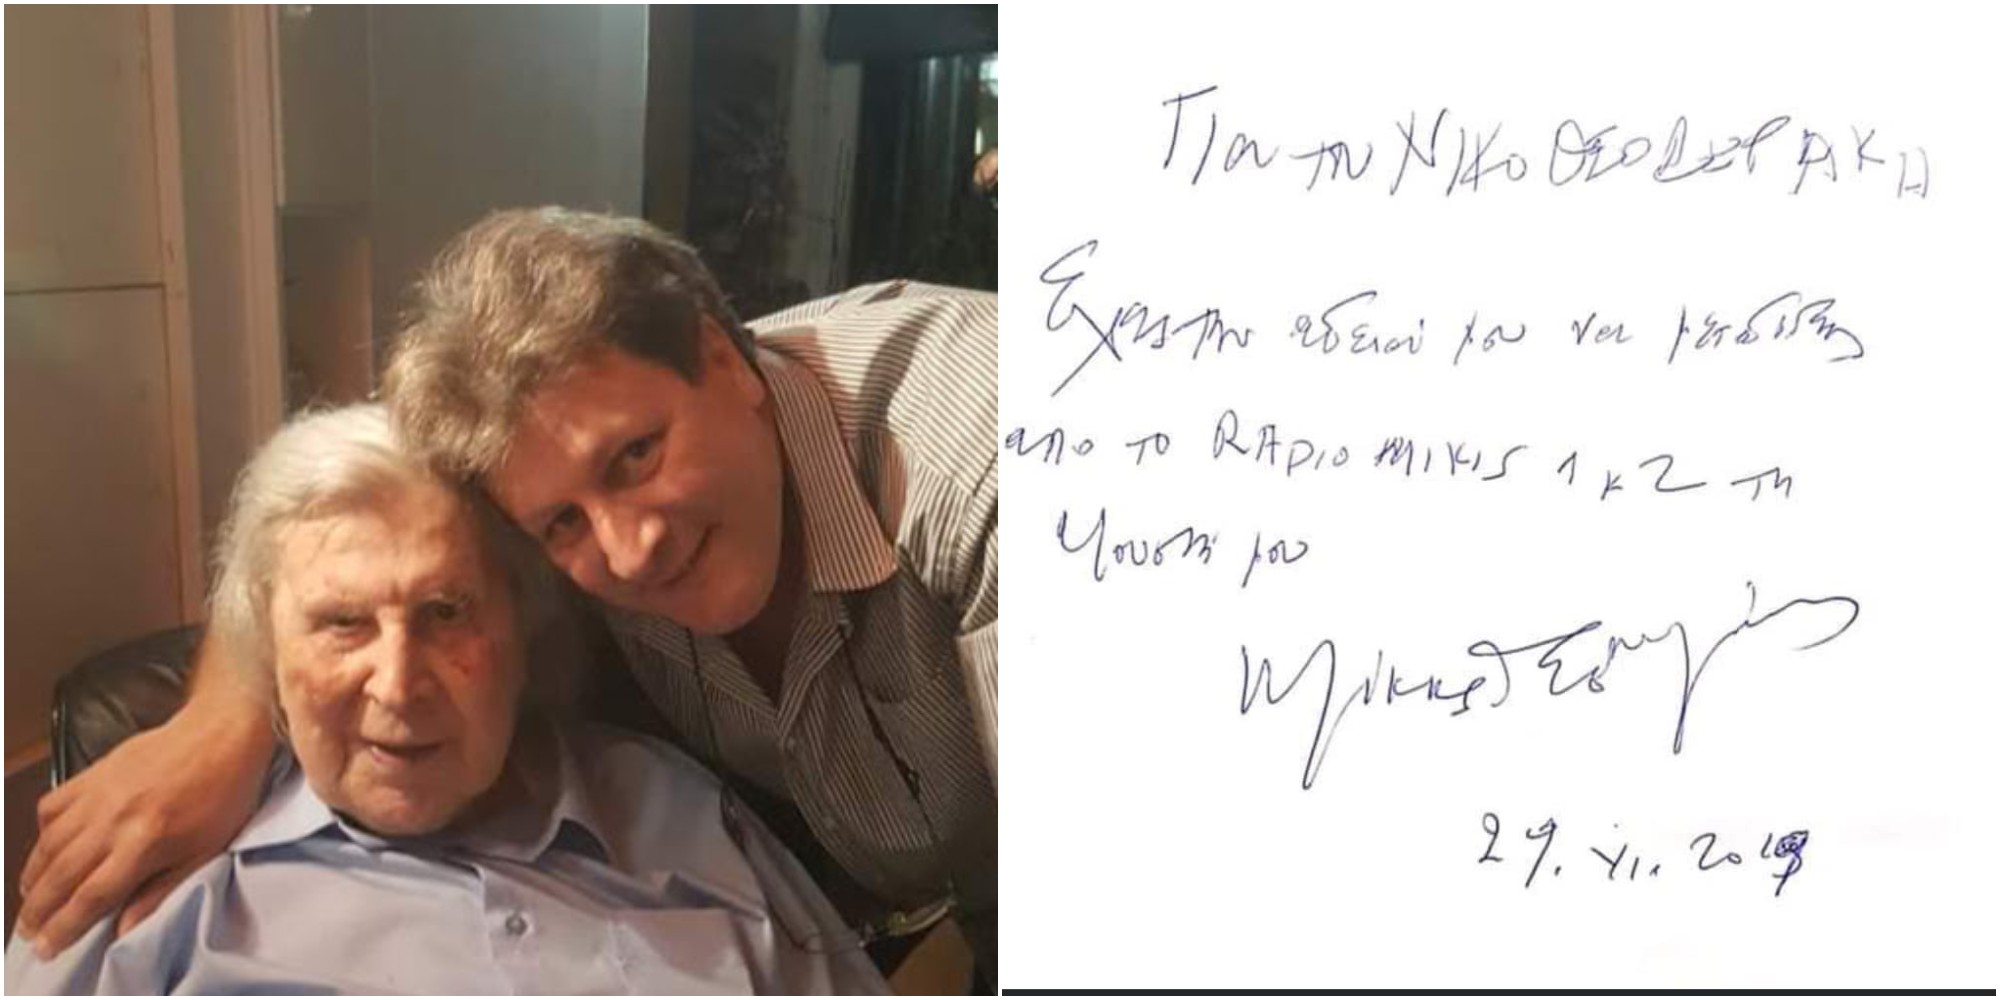 Για τον ΝΙΚΟ ΘΕΟΔΩΡΑΚΗ
Έχεις την άδειά μου να μεταδίδεις
από το RADIO MIKIS 1 κ 2 τη
Μουσική μου
Μίκης Θεοδωράκης
29. XI. 2019